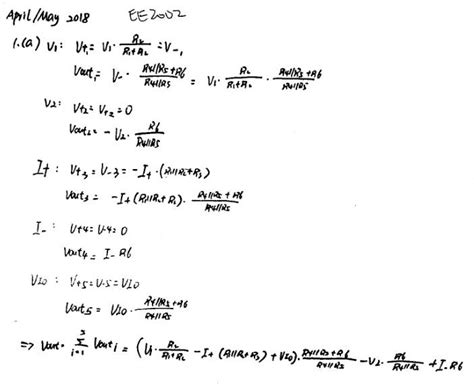 April/May 2018 EE2002
1.(a) V₁: V+₁ = V₁ · R₂/(R₁+R₂) = V-₁
Vout₁ = V- · (R4//R5+R6)/(R4//R5) = V₁ · R₂/(R₁+R₂) · (R4//R5+R6)/(R4//R5)
V₂: V+₂ = V+₂ = 0
Vout₂ = - V₂ · R6/(R4//R5)
I+ : V+₃ = V-₃ = -I+ · (R1//R2+R3)
Vout₃ = -I+ (R1//R2+R3) · (R4//R5 + R6)/(R4//R5)
I- : V+4 = V-4 = 0
Vout₄ = I- R6
VIO : V+5 = V-5 = VIO
Vout₅ = VIO · (R4//R5+R6)/(R4//R5)
=> Vout = ∑ᵢ₌₁⁵ Vout i = (V₁ · R₂/(R₁+R₂) - I+ (R1//R2+R3) + VIO) · (R4//R5+R6)/(R4//R5) - V₂ · R6/(R4//R5) + I- R6